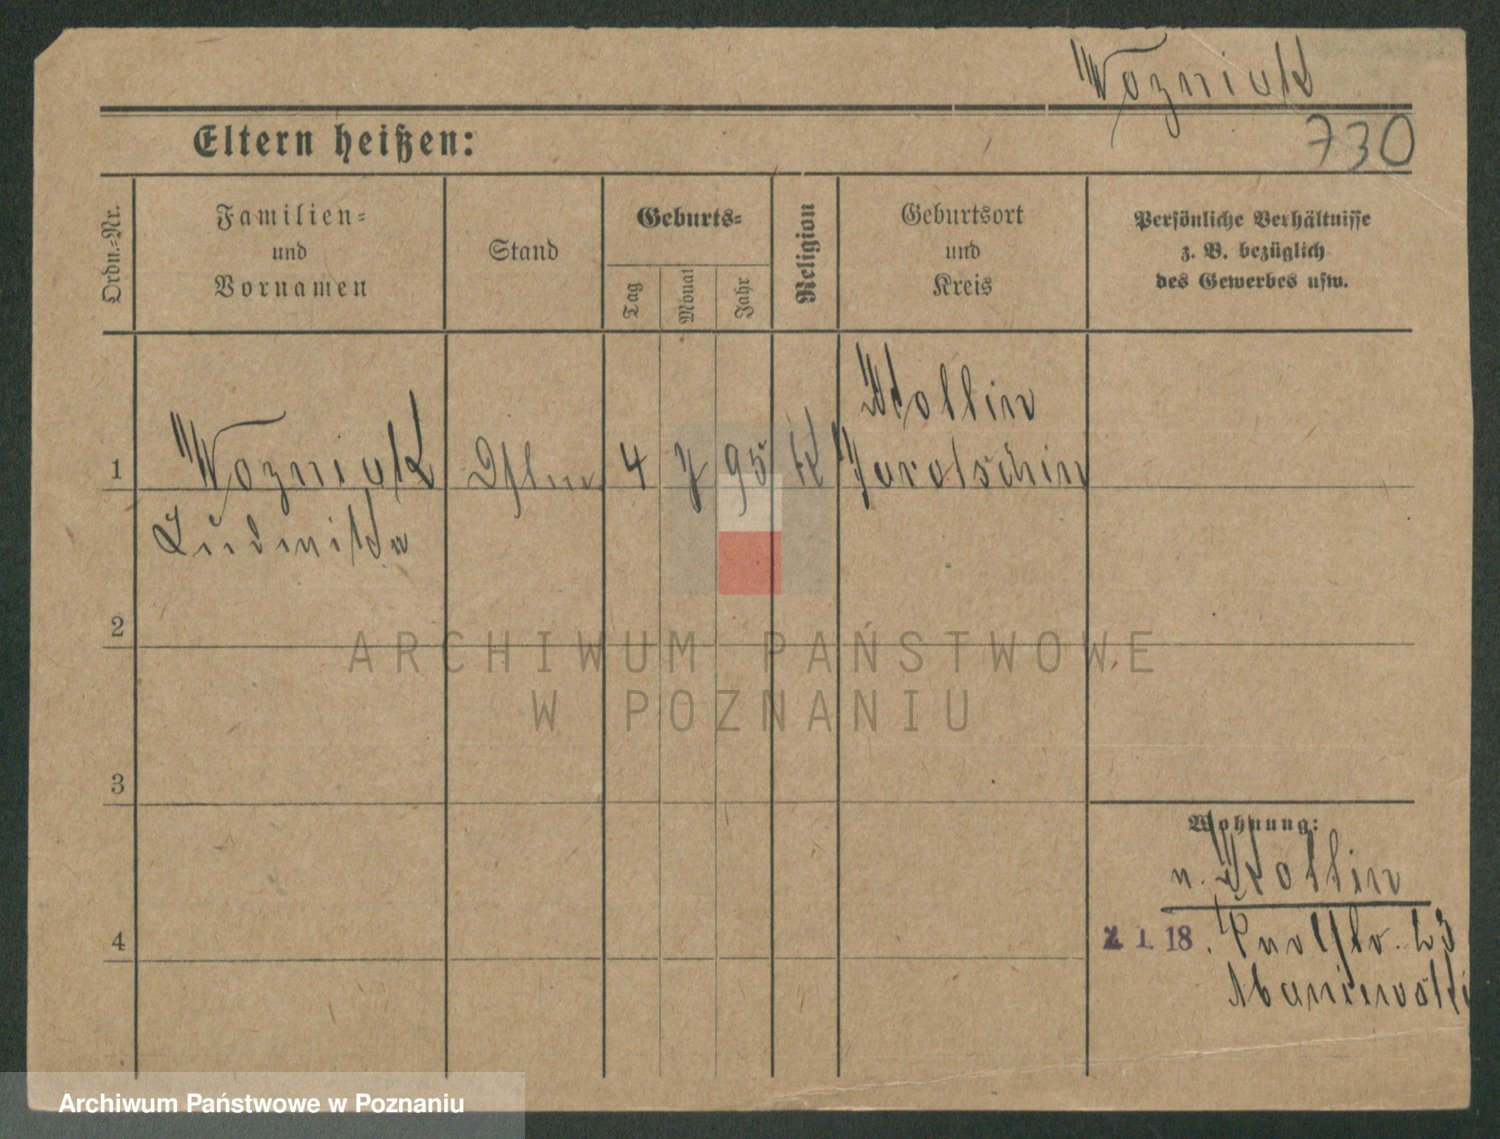 Wozniak
730
Eltern heißen:
Ordn.-Nr.
Familien-
und
Vornamen
Stand
Geburts-
Tag
Monat
Jahr
Religion
Geburtsort
und
Kreis
Persönliche Verhältnisse
z. B. bezüglich
des Gewerbes usw.
Kollin
1 Wozniak 4 7 95 K Jarotschin
Ludmika
2
3
4
Wohnung:
n. Kollin
2. 1. 18. 23
ARCHIWUM PAŃSTWOWE
W POZNANIU
Archiwum Państwowe w Poznaniu